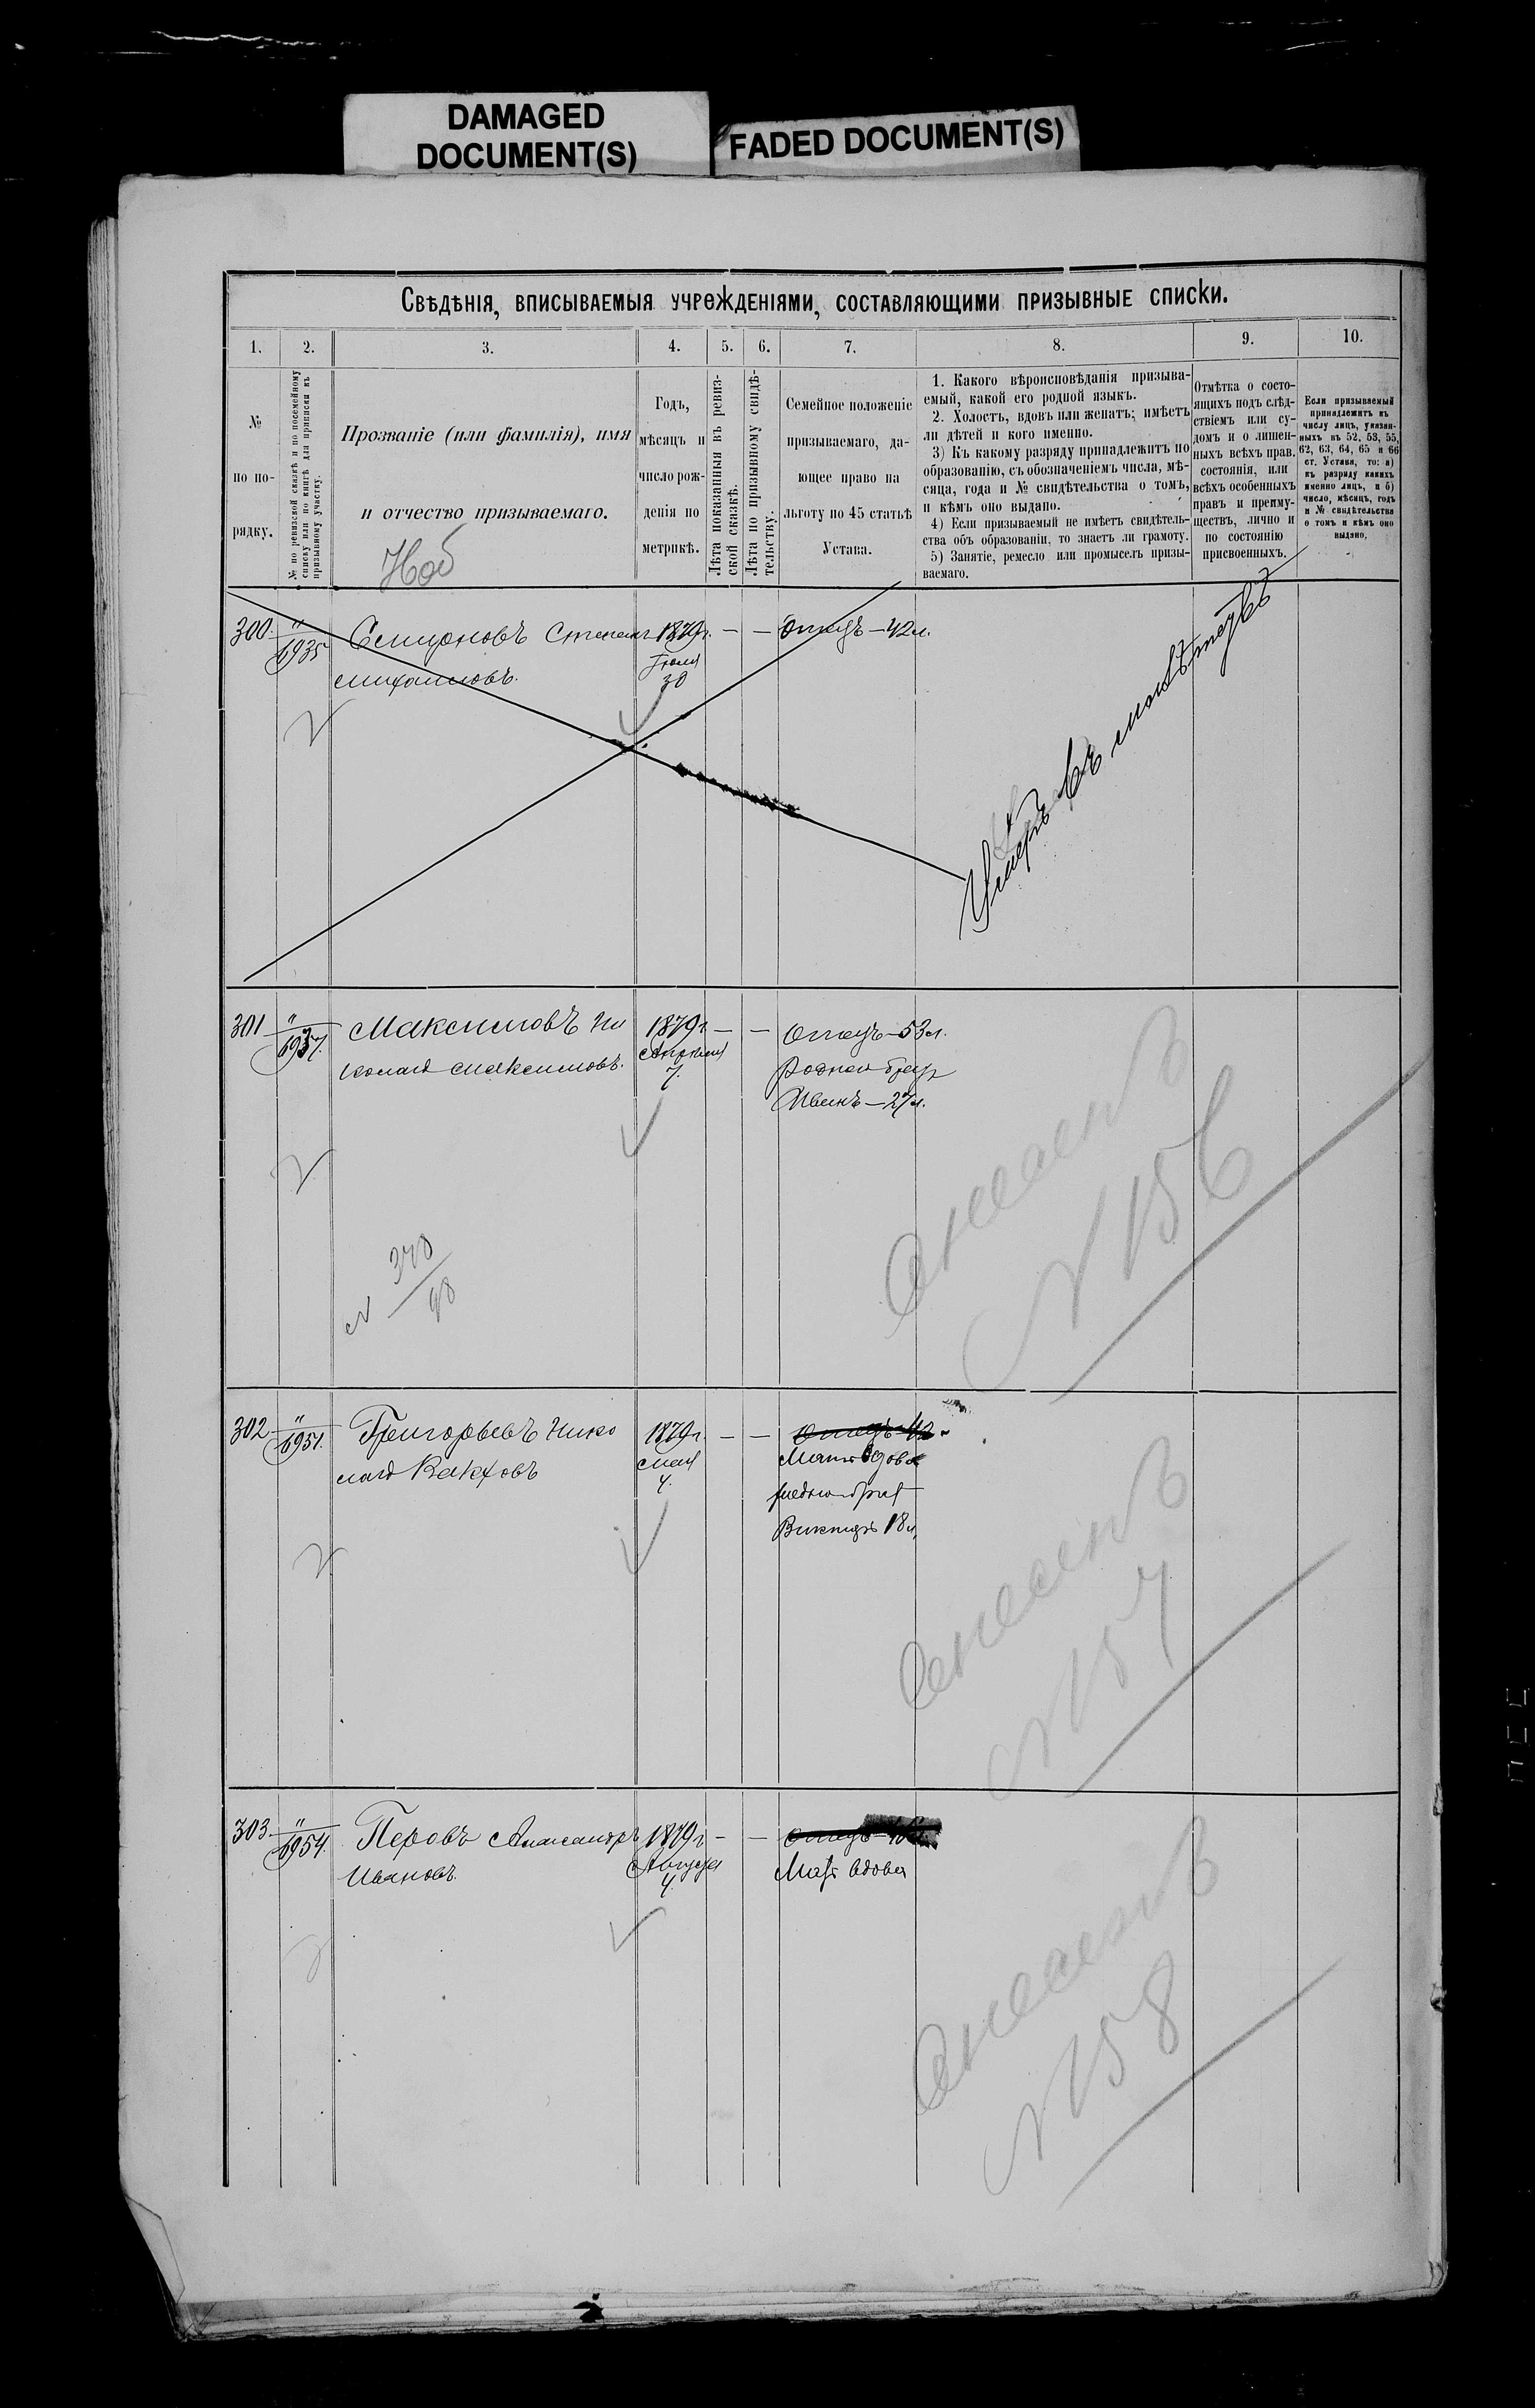 DAMAGED
DOCUMENT(S)
FADED DOCUMENT(S)
Свѣдѣнія, вписываемыя учрежденіями, составляющими призывные списки.
1.
2.
3.
4.
5.
6.
7.
8.
9.
10.
№
по по-
рядку.
№ по ревизской сказкѣ и по посемейному
списку или по книгѣ для приписки къ
призывному участку.
Прозваніе (или фамилія), имя
и отчество призываемаго.
Годъ,
мѣсяцъ и
число рож-
денія по
метрикѣ.
Лѣта показанныя въ ревиз-
ской сказкѣ.
Лѣта по призывному свидѣ-
тельству.
Семейное положеніе
призываемаго, да-
ющее право на
льготу по 45 статьѣ
Устава.
1. Какого вѣроисповѣданія призыва-
емый, какой его родной языкъ.
2. Холостъ, вдовъ или женатъ; имѣетъ
ли дѣтей и кого именно.
3) Къ какому разряду принадлежитъ по
образованію, съ обозначеніемъ числа, мѣ-
сяца, года и № свидѣтельства о томъ,
и кѣмъ оно выдано.
4) Если призываемый не имѣетъ свидѣтель-
ства объ образованіи, то знаетъ ли грамоту.
5) Занятіе, ремесло или промыселъ призы-
ваемаго.
Отмѣтка о состо-
ящихъ подъ слѣд-
ствіемъ или су-
домъ и о лишен-
ныхъ всѣхъ прав.
состоянія, или
всѣхъ особенныхъ
правъ и преиму-
ществъ, лично и
по состоянію
присвоенныхъ.
Если призываемый
принадлежитъ къ
числу лицъ, указан-
ныхъ въ 52, 53, 55,
62, 63, 64, 65 и 66
ст. Устава, то: а)
къ разряду какихъ
именно лицъ, и б)
число, мѣсяцъ, годъ
и № свидѣтельства
о томъ и кѣмъ оно
выдано.
300
"
6935
Семионовъ Степанъ
Михаиловъ.
1879г.
Іюля
30
— — Отецъ—42л.
Умеръ въ малолѣтствѣ
301
"
6937.
Максимовъ Ни
колай Максимовъ.
1879г.
Апрѣля
7.
— — Отецъ—53л.
Родной братъ
Иванъ—27л.
Внесенъ
№ 156
№ 378
98
302
"
6951.
Григорьевъ Нико
лай Вакховъ
1879г.
Мая
4.
— — Отецъ 42
Мать вдова
родной братъ
Викторъ 18л.
Внесенъ
№ 157
303.
"
6954.
Перовъ Александръ
Ивановъ.
1879г.
Августа
4.
— — Отецъ
Мать вдова
Внесенъ
№ 158